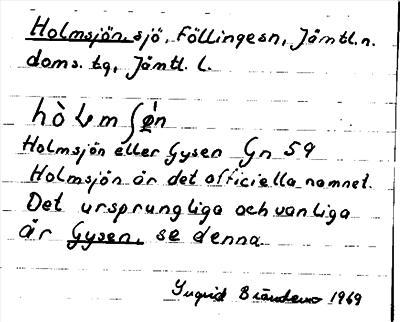 Holmsjön, sjö, Föllinge sn, Jämtl. n.
doms. tg, Jämtl. l.
Holmsjön eller Gysen Gn 59
Holmsjön är det officiella namnet.
Det ursprungliga och vanliga
är Gysen, se denna
Ingrid 1969